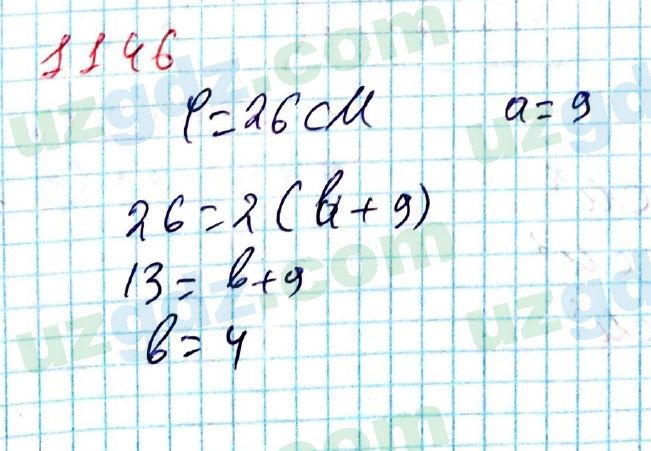 1146
P=26 см a=9
26=2(b+9)
13=b+9
b=4
uzgdz.com
uzgdz.com
uzgdz.com
uzgdz
uzgdz